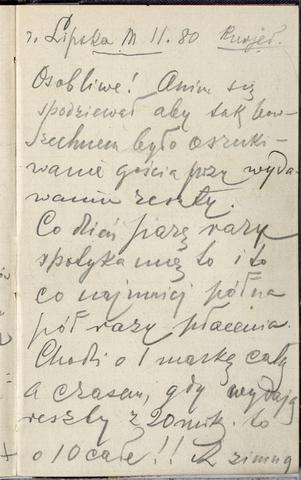 z Lipska M 11. 80
Osobliwe! Anim się
spodziewał aby tak pow-
szechnem było oszuki-
wanie gościa przy wyda-
waniu reszty.
Co dzień parę razy
spotyka mię to i to
co najmniej pół na
pół razy płacenia.
Chodzi o 1 markę całą
a czasem, gdy wydają
reszty z 20 mk. to
o 10 całe!! Z zimną